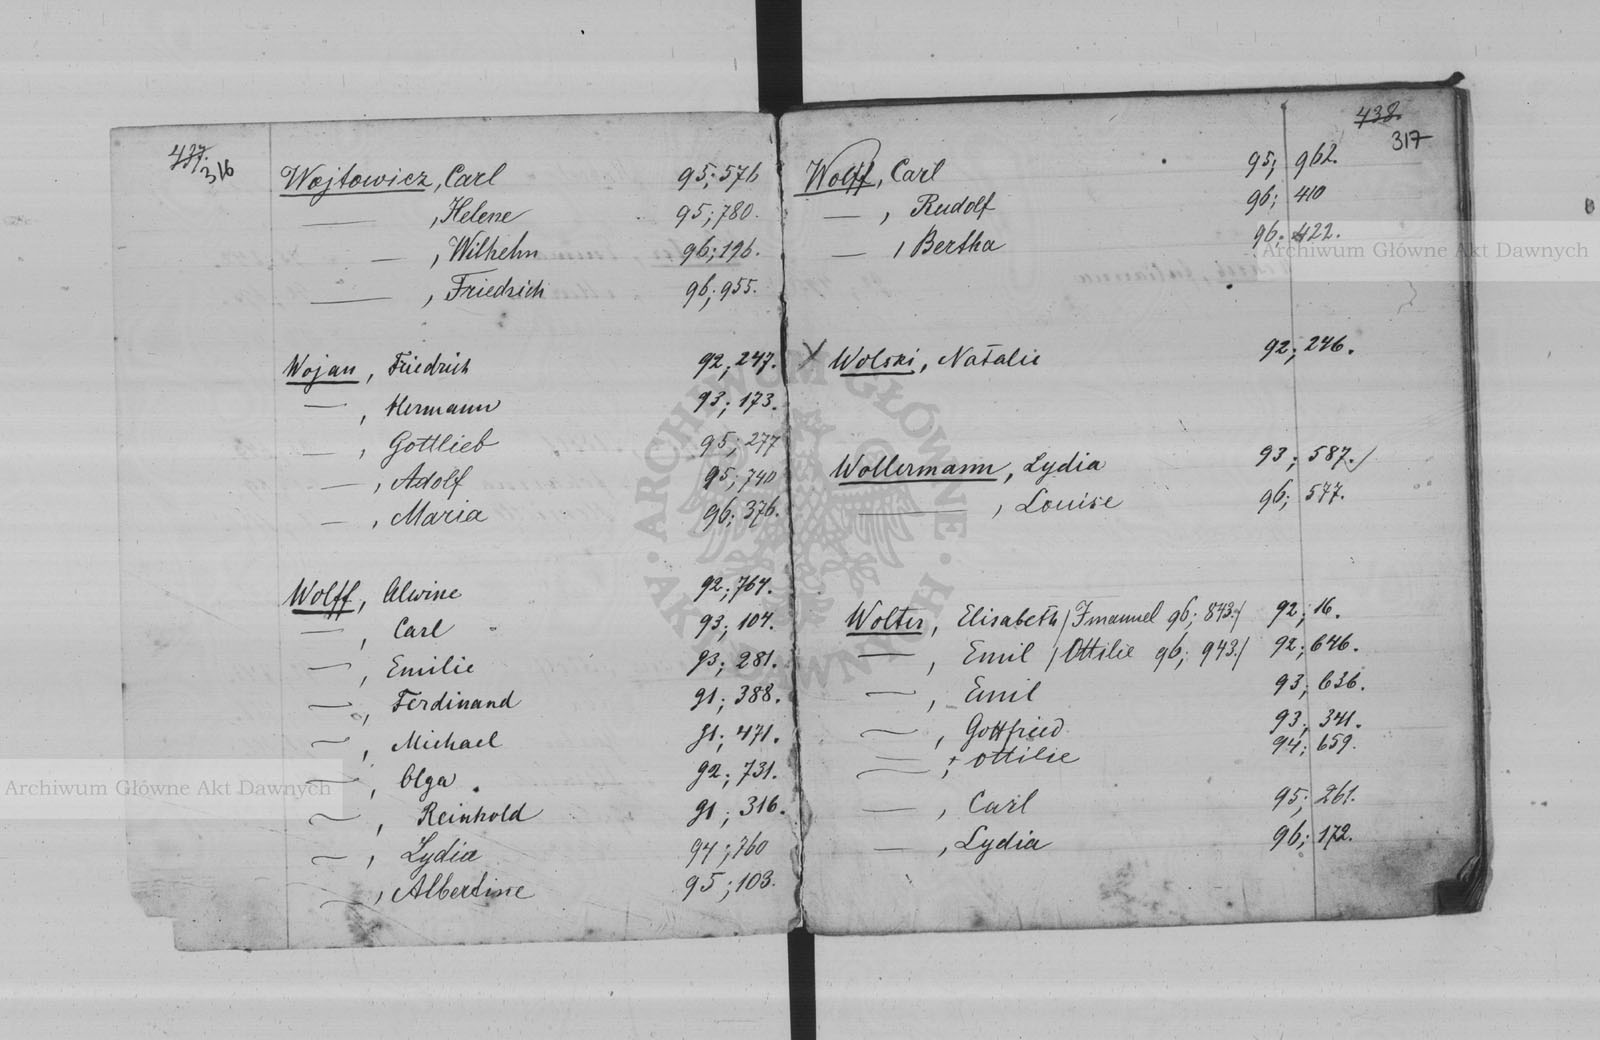 437.
316
Wojtowicz, Carl 95; 576
— , Helene 95; 780.
— , Wilhelm 96; 196.
— , Friedrich 96; 955.
Wojan, Friedrich 92; 247.
— , Hermann 93; 173.
— , Gottlieb 95; 277
— , Adolf 95; 740
— , Maria 96; 376.
Wolff, Alwine 92; 764.
— , Carl 93; 104.
— , Emilie 93; 281.
— , Ferdinand 91; 388.
— , Michael 91; 471.
— , Olga 92; 731.
— , Reinhold 91; 316.
— , Lydia 94; 760
— , Albertine 95; 103.
438.
317
Wolff, Carl 95; 962.
— , Rudolf 96; 410
— , Bertha 96; 422.
X Wolski, Natalie 92; 246.
Wollermann, Lydia 93; 587./
— , Louise 96; 577.
Wolter, Elisabeth /Imanuel 96; 843./ 92; 16.
— , Emil /Ottilie 96; 943./ 92; 646.
— , Emil 93; 636.
— , Gottfried 93; 341.
— , Ottilie 94; 659.
— , Carl 95; 261.
— , Lydia 96; 172.
Archiwum Główne Akt Dawnych
Archiwum Główne Akt Dawnych
ARCHIWUM GŁÓWNE AKT DAWNYCH